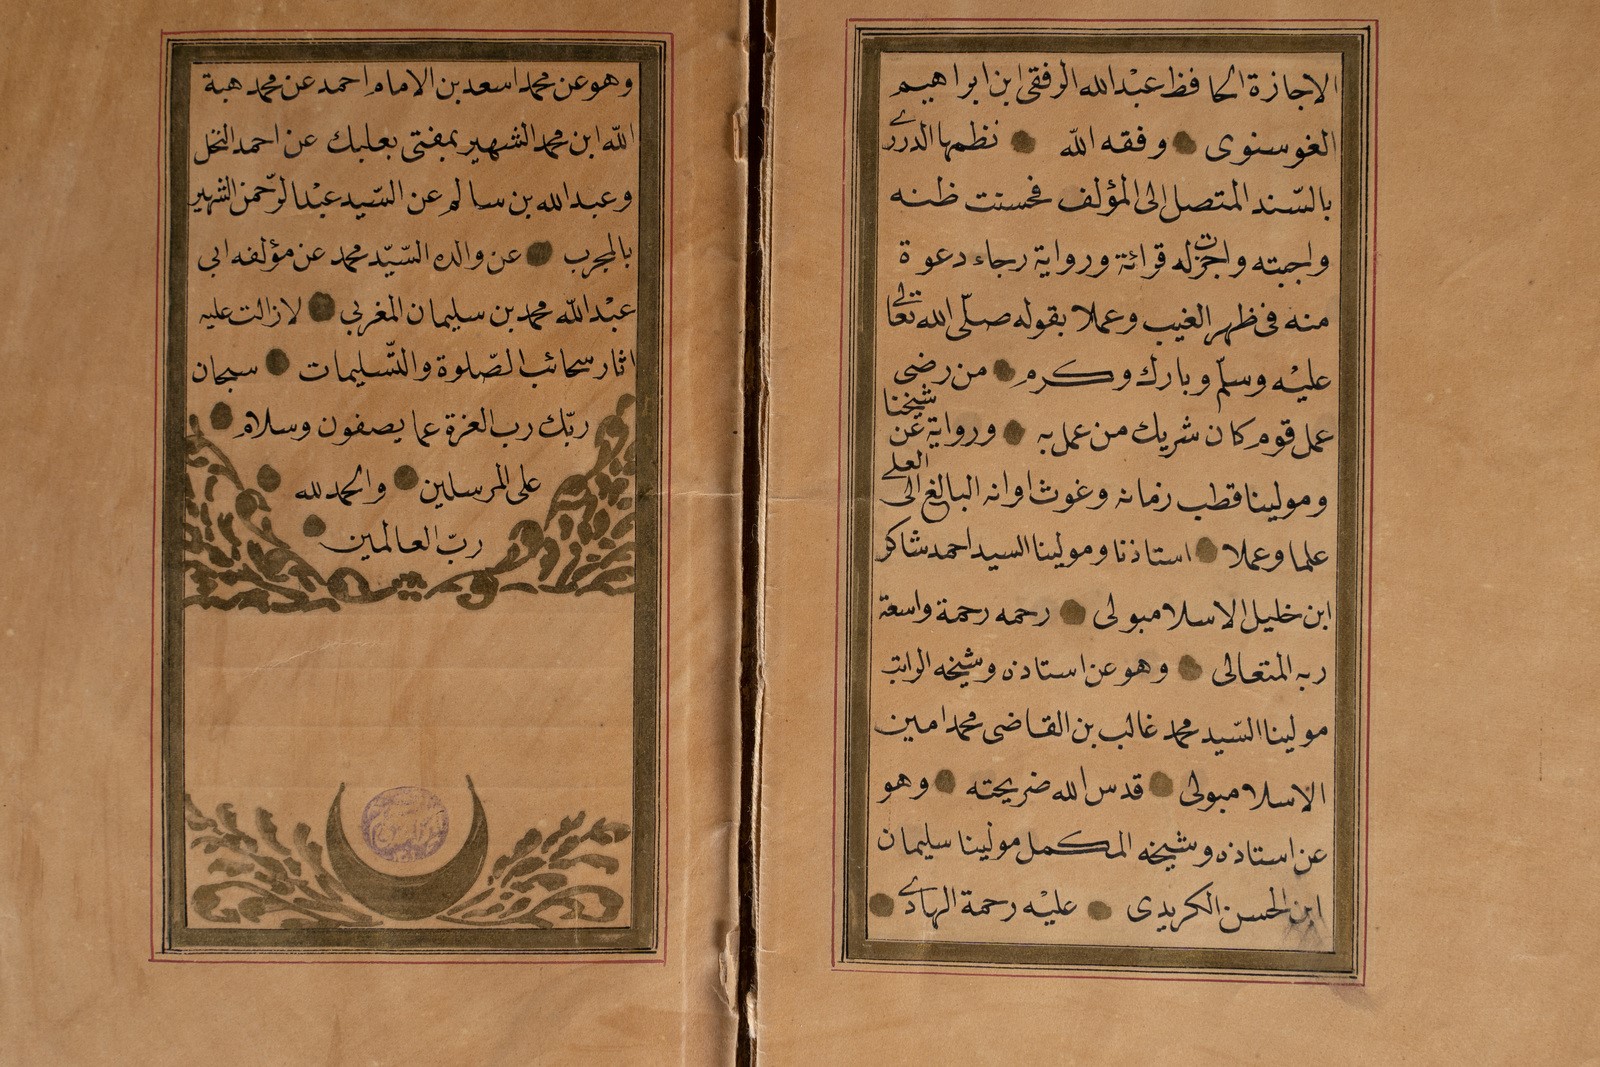 الاجازة الحافظ عبْد الله الرفقى ابن ابراهيم
الغوسنوى وفقه الله نظمها الدررے
بالسّند المتصل الى المؤلف فحسنت ظنه
واجبته واجزت له قرائة ورواية رجاء دعوة
منه فى ظهر الغيب وعملا بقوله صلّى الله تعالى
عليْه وسلّم وبارك وكرم من رضى
عمل قوم كان شريك من عمل به ورواية عن شيخنا
ومولينا قطب زمانه وغوث اوانه البالغ الى العلے
علما وعملا استاذنا ومولينا السيد احمد شاكر
ابن خليل الاسلامبولى رحمه رحمة واسعة
ربه المتعالى وهو عن استاذه وشيخه
مولينا السّيد محمد غالب بن القاضى محمد امين
الاسلامبولى قدس الله ضريحته وهو
عن استاذه وشيخه المكمل مولينا سليمان
ابن الحسن الكريدى عليْه رحمة الهادے
وهو عن محمد اسعد بن الامام احمد عن محمد هبة
الله ابن محمد الشهير بمفتى بعلبك عن احمد النخل
وعبد الله بن سالم عن السّيد عبْد الرّحمن الشهير
بالمجرب عن والده السّيّد محمد عن مؤلفه ابى
عبْد الله محمد بن سليمان المغربى لازالت عليه
اثار سحائب الصّلوة والتّسليمات سبحان
ربّك رب العزة عما يصفون وسلام
على المرسلين والحمد لله
ربّ العالمين